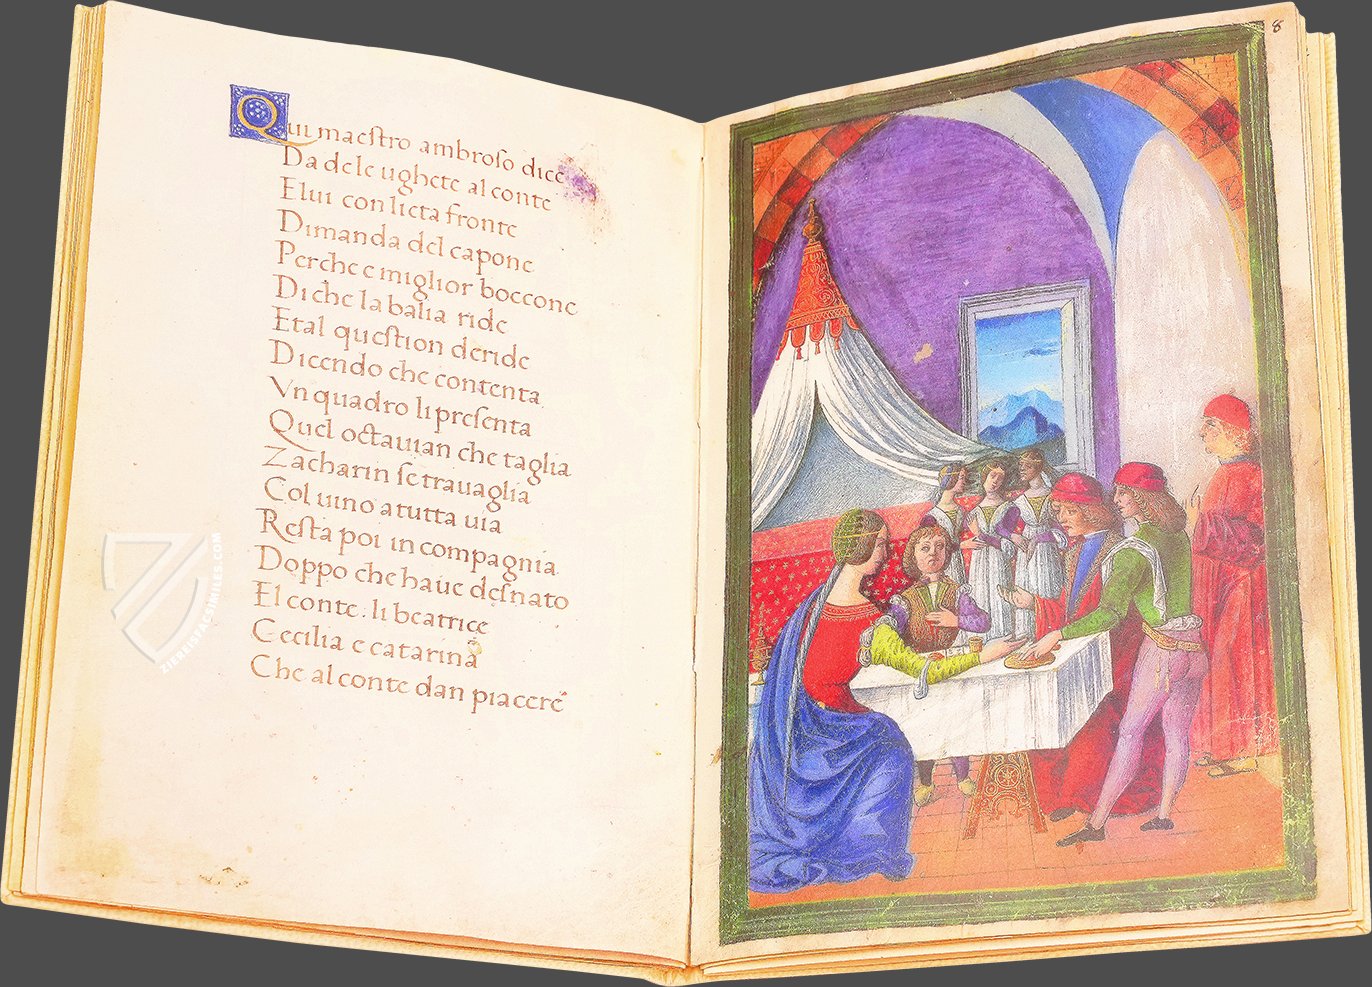 Qui maestro ambroso dice
Da dele ughete al conte
Elui con lieta fronte
Dimanda del capone
Perche e miglior boccone
Di che la balia ride
Etal question deride
Dicendo che contenta
Vn quadro li presenta
Quel octauian che taglia
Zacharin se trauaglia
Col uino a tutta uia
Resta poi in compagnia
Doppo che haue desnato
El conte. li beatrice
Cecilia e catarina
Che al conte dan piacere
8
ZIEREISFACSIMILES.COM